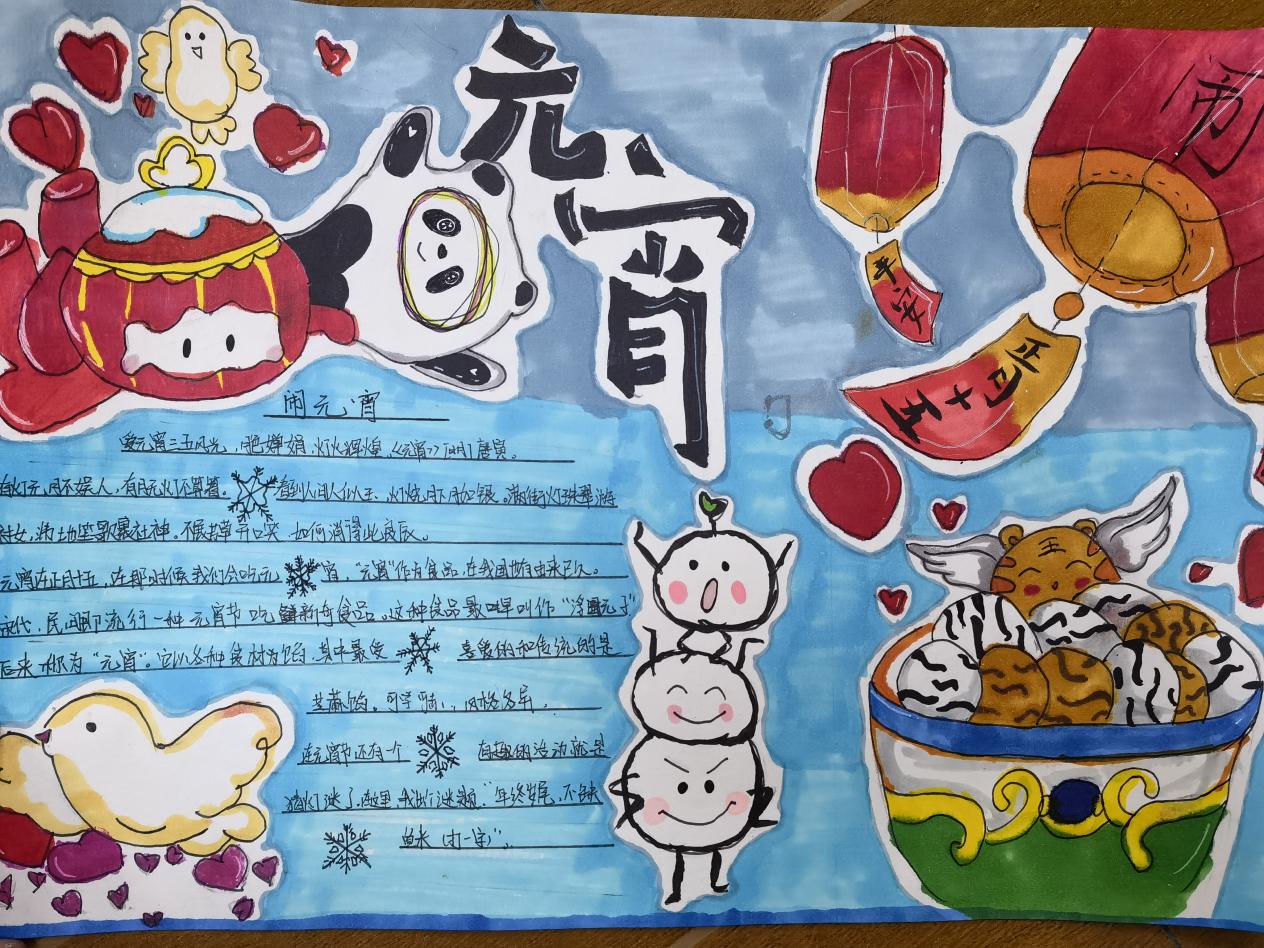 元宵
闹
平安
正月十五
闹元宵
爱元宵三五风光,月色婵娟,灯火辉煌,《元宵》 [明] 唐寅。
有灯无月不娱人,有月无灯不算春。春到人间人似玉,灯烧月下月如银。满街灯珠翠游
村女,沸地笙歌赛社神。不展芳尊开口笑 如何消得此良辰。
元宵在正月十五,在那时候我们会吃元宵,“元宵”作为食品,在我国也有由来已久。
宋代,民间即流行一种元宵节吃的新奇食品。这种食品最早叫作“浮圆元子”
后来 称为“元宵”。它以各种食材为馅 其中最受喜爱的和传统的是
芝麻馅。可荤可 ,风格多异。
在元宵节还有一个 有趣的活动就是
猜灯谜了,在这里 我出个谜题:“年终岁尾,不缺
鱼米(打一字)”。
王